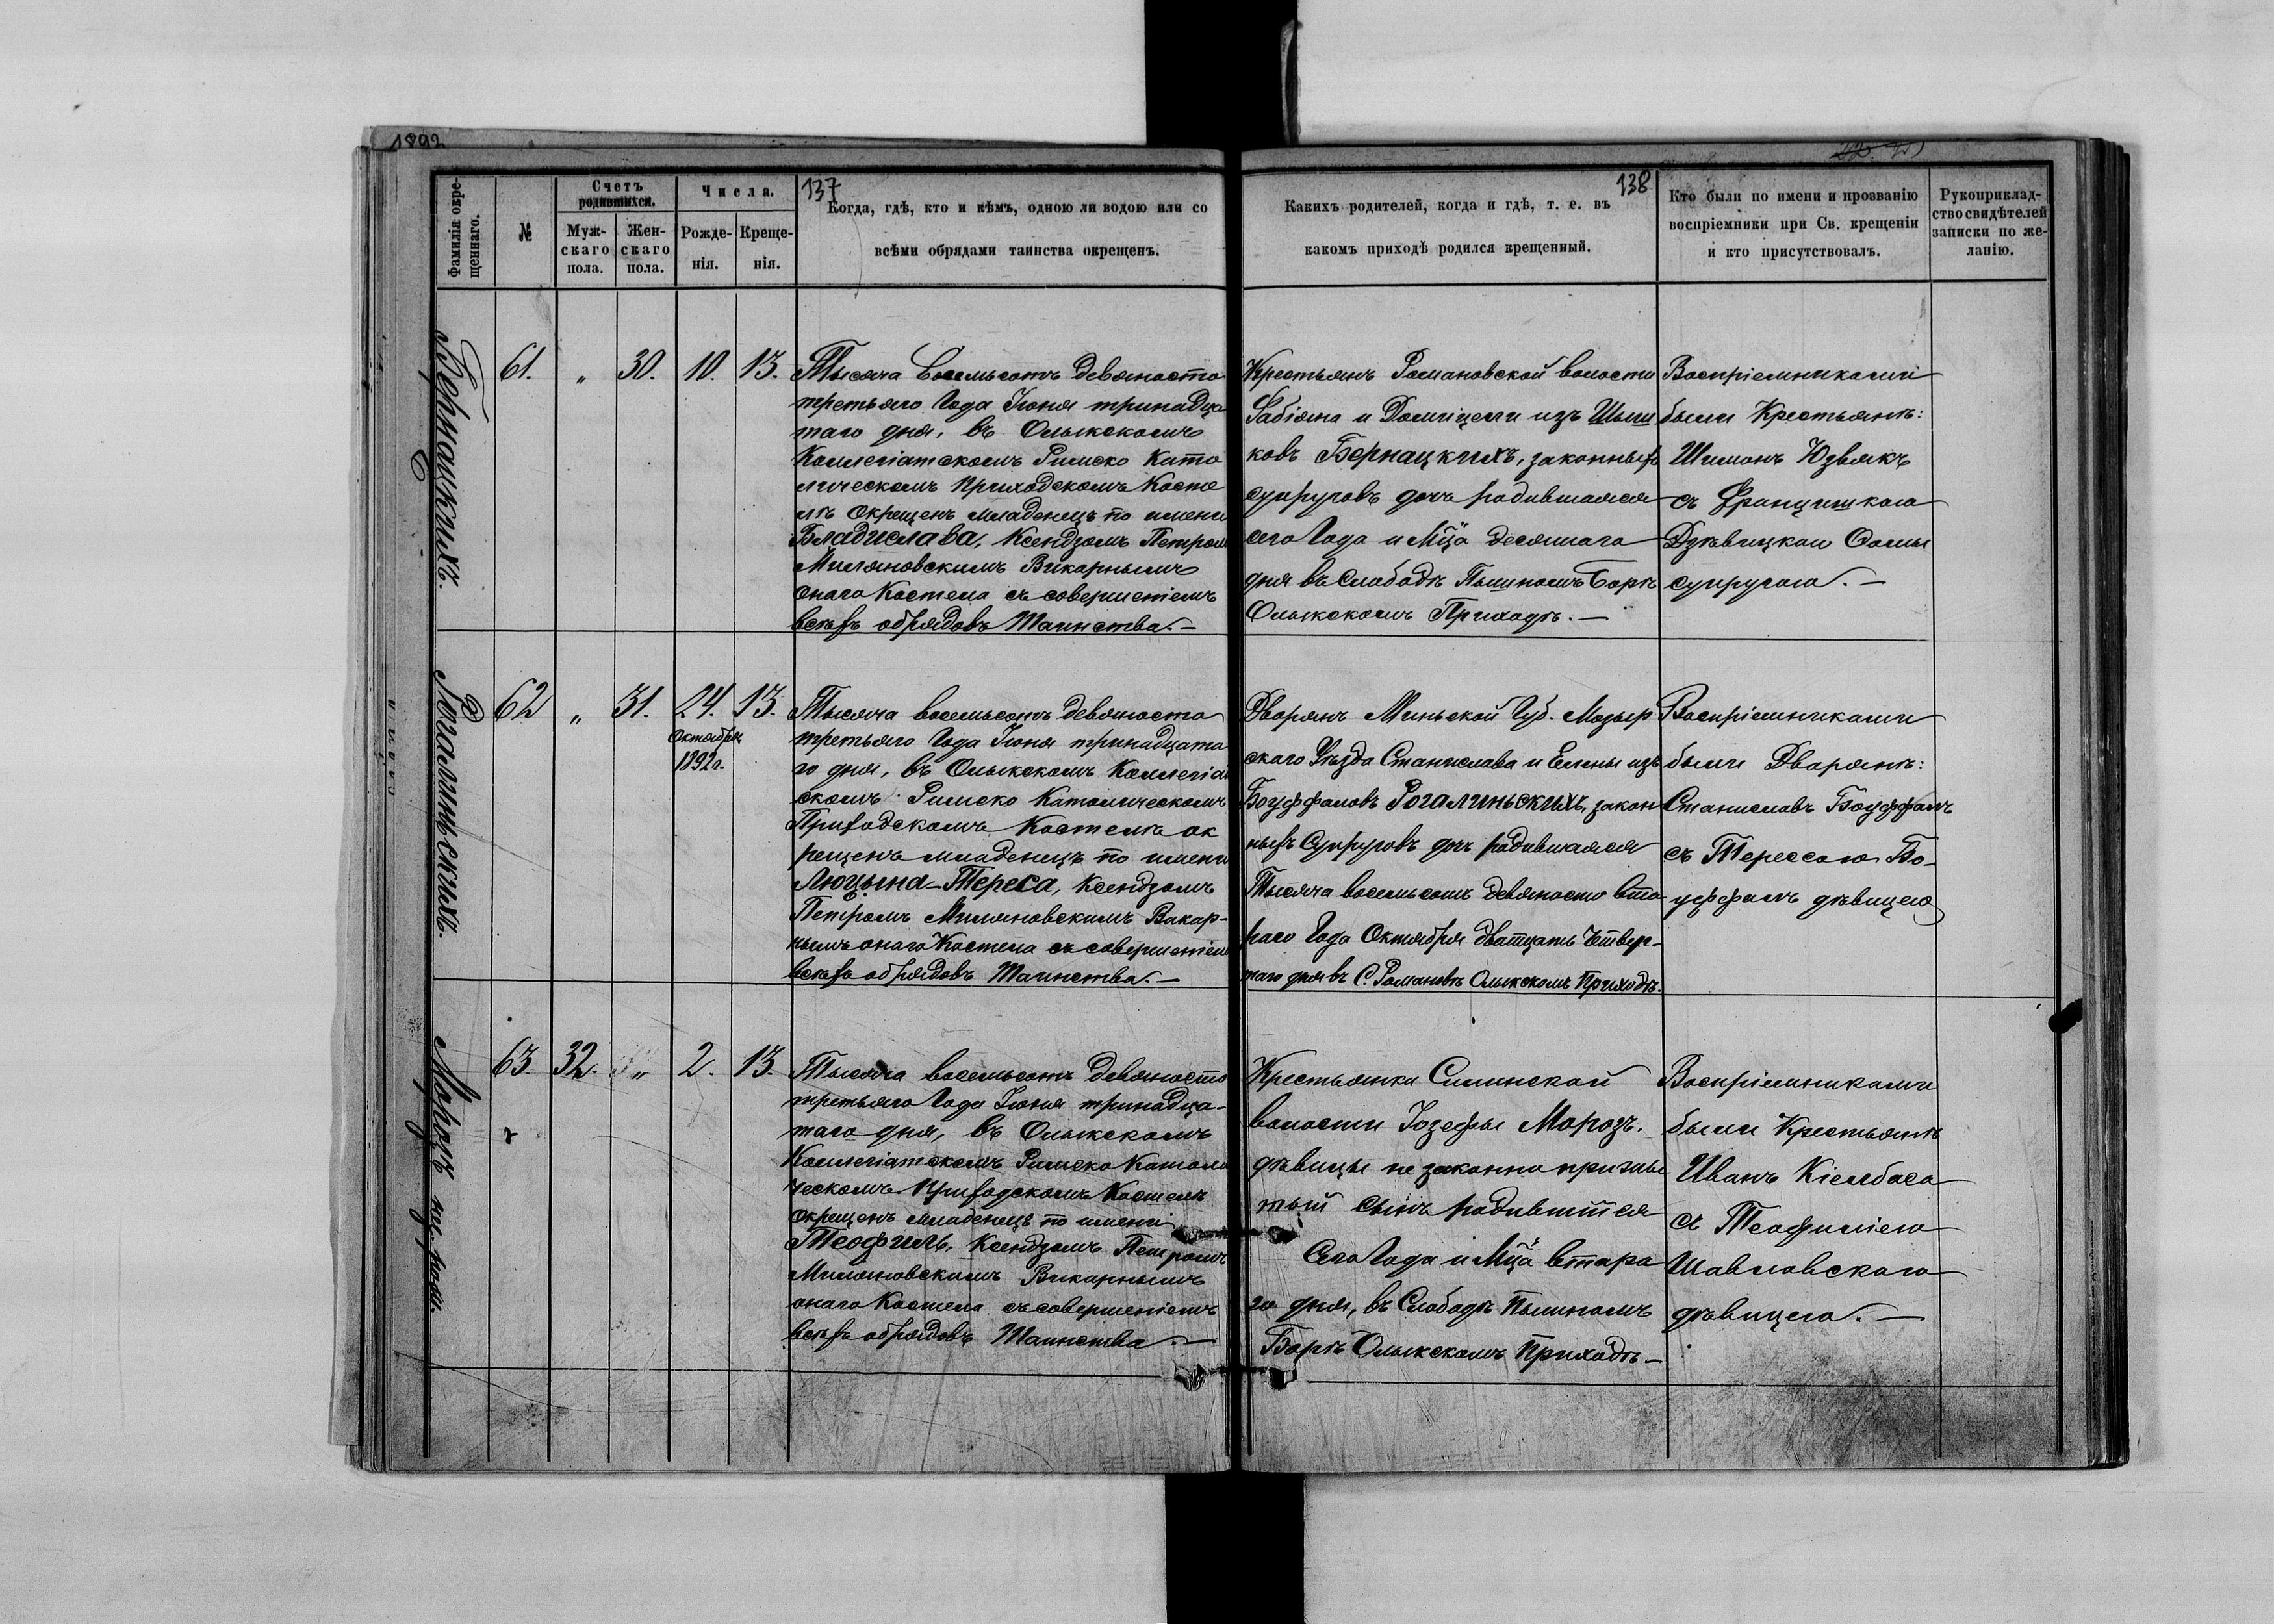 1892
137
Фамилія окре-
щеннаго.
№
Счетъ
родившихся.
Муж-
скаго
пола.
Жен-
скаго
пола.
Числа.
Рожде-
нія.
Креще-
нія.
Когда, гдѣ, кто и кѣмъ, одною ли водою или со
всѣми обрядами таинства окрещенъ.
138
Какихъ родителей, когда и гдѣ, т. е. въ
какомъ приходѣ родился крещенный.
Кто были по имени и прозванію
воспріемники при Св. крещеніи
и кто присутствовалъ.
Рукоприклад-
ство свидѣтелей
записки по же-
ланію.
Бернацкихъ.
61. " 30. 10. 13.
Тысяча Восемьсотъ девяносто
третьяго Года Іюня тринадца
таго дня, въ Олыкскомъ
Коллегіатскомъ Римско Като
лическомъ Приходскомъ Косте
лѣ Окрещенъ младенецъ по имени
Владислава, Ксендзомъ Петром
Миляновскимъ Викарнымъ
онаго Костела съ совершеніемъ
всѣхъ обрядовъ Таинства.—
Крестьянъ Романовской волости
Фабіяна и Домицели изъ Шиш
ковъ Бернацкихъ, законныхъ
супруговъ дочь родившаяся
сего Года и Мца десятаго
дня въ Слободѣ Пылномъ Боркѣ
Олыкскомъ Приходѣ.—
Воспріемниками
были Крестьянѣ:
Шимонъ Юзвякъ
съ Францишкою
Дзѣвицкою Фомы
супругою.—
Рогалиньскихъ.
62 " 31. 24. 13.
Октября
1892 г.
Тысяча восемьсотъ девяносто
третьяго Года Іюня тринадцата
го дня, въ Олыкскомъ Коллегіат
скомъ Римско Католическомъ
Приходскомъ Костелѣ ок
рещенъ младенецъ по имени
Люцына-Тереса, Ксендзомъ
Петромъ Миляновскимъ Викар-
нымъ онаго Костела съ совершеніем
всѣхъ обрядовъ Таинства.—
Дворянъ Миньской Губ. Мозыр
скаго Уѣзда Станислава и Елены изъ
Боуффаловъ Рогалиньскихъ, закон
ныхъ Супруговъ дочь родившаяся
Тысяча восемьсотъ девяносто вто
раго Года Октября двадцать Четвер-
таго дня въ С. Романовѣ Олыкскомъ Приходѣ.
Воспріемниками
были Дворянѣ:
Станиславъ Боуффалъ
съ Терессою Бо-
уффалъ дѣвицею
Морозъ нез. рожд.
63. 32. " 2. 13.
Тысяча восемьсотъ девяносто
третьяго Года Іюня тринадца-
таго дня, въ Олыкскомъ
Коллегіатскомъ Римско Католи
ческомъ Приходскомъ Костелѣ
Окрещенъ младенецъ по имени
Теофиль, Ксендзомъ Петромъ
Миляновскимъ Викарнымъ
онаго Костела съ совершеніемъ
всѣхъ обрядовъ Таинства.—
Крестьянки Силинской
волости Іозефы Морозъ.
дѣвицы не законно прижи
тый сынъ родившійся
Сего Года и Мца втара
го дня, въ Слободѣ Пылномъ
Боркѣ Олыкскомъ Приходѣ—
Воспріемниками
были Крестьянѣ
Иванъ Кіелбаса
съ Теофиліею
Шавловскою
дѣвицею.—